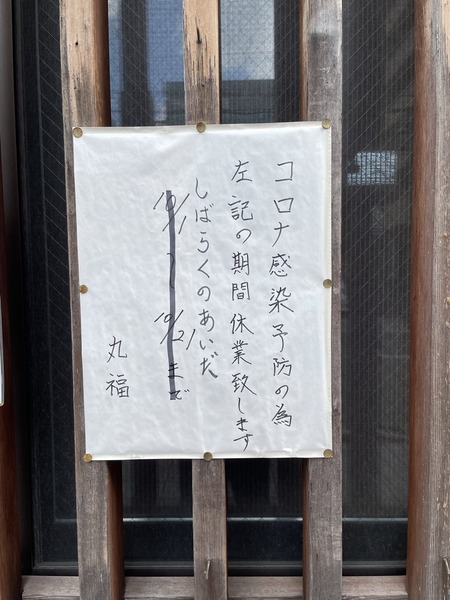 コロナ感染予防の為
左記の期間休業致します
しばらくのあいだ、
10/1〜10/21まで
丸福